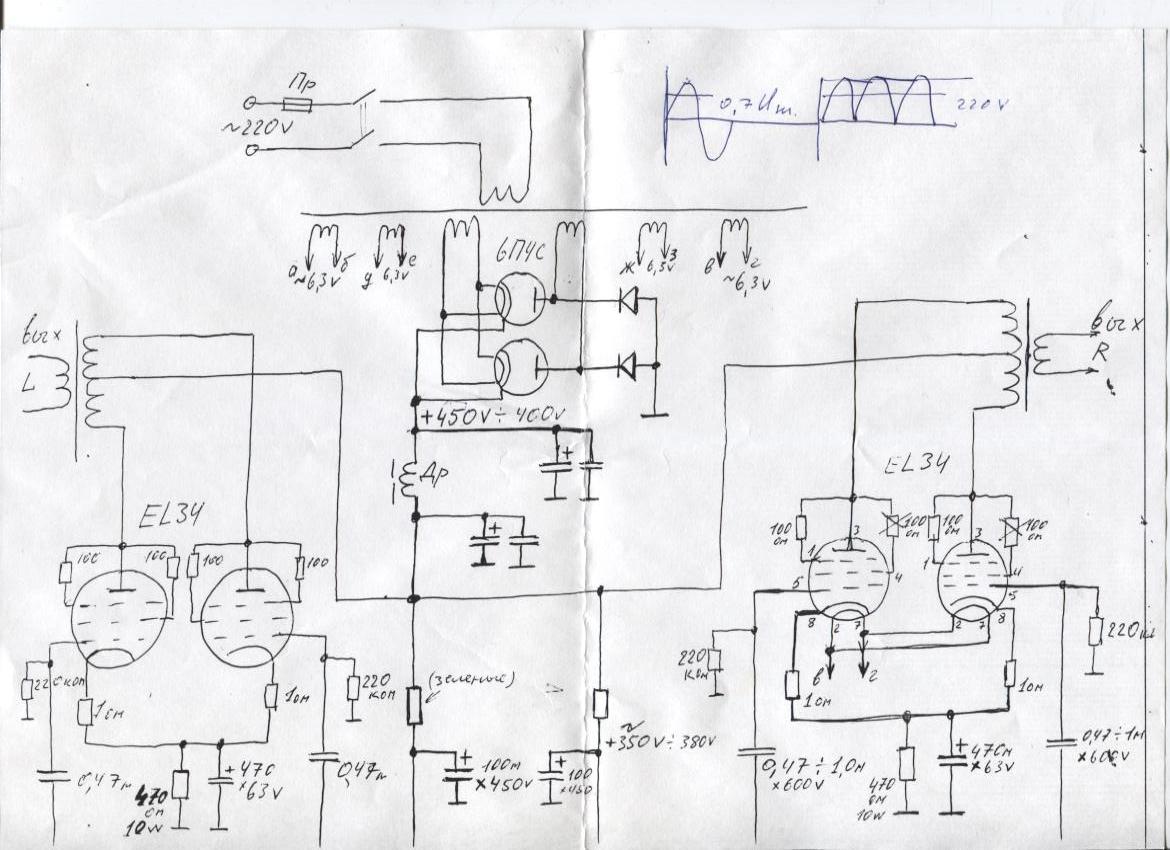 Пр
~220V
0,7Um.
220V
6ПЧС
а
~6,3V
б
д
6,3V
е
ж
6,3V
з
в
~6,3V
г
Вых
L
Вых
R
+450V÷400V
Др
EL34
EL34
100
100
100
100
100
ом
100
ом
100
ом
100
ом
1
3
4
5
8
2
7
1
3
4
5
2
7
8
в
г
220ком
1ом
1ом
220
ком
(зеленые)
220
ком
1ом
1ом
220к
+350V÷380V
0,47м
470
ом
10w
+470
×63V
0,47м
100м
×450V
100
×450
0,47÷1,0м
×600V
470
ом
10w
470м
×63V
0,47÷1м
×600V